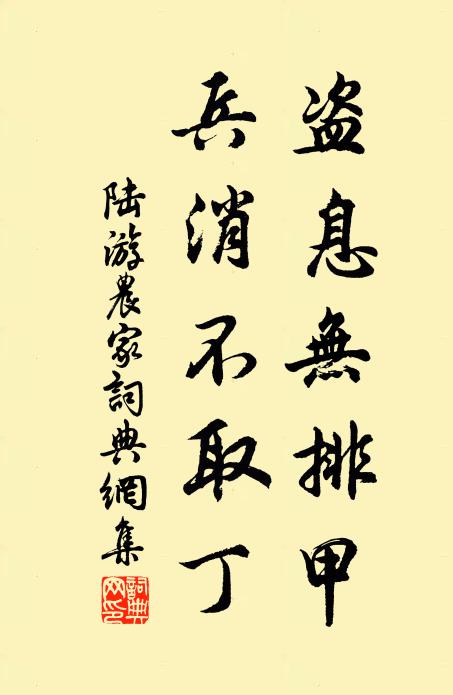 盗息無排甲
兵消不取丁
陆游農家詞典網集
詞典网印